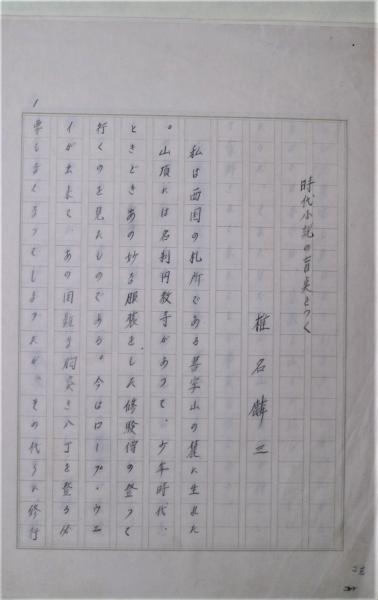 時代小説の盲点をつく
椎名麟三
私は西国の札所である書写山の麓に生れた
。山頂には名刹円教寺があって、少年時代、
ときどきあの妙な服装をした修験僧の登って
行くのを見たものである。今はロープ・ウエ
イが出来て、あの困難な胸突き八丁を登る必
要もなくなってしまったが、その代りに修行
1